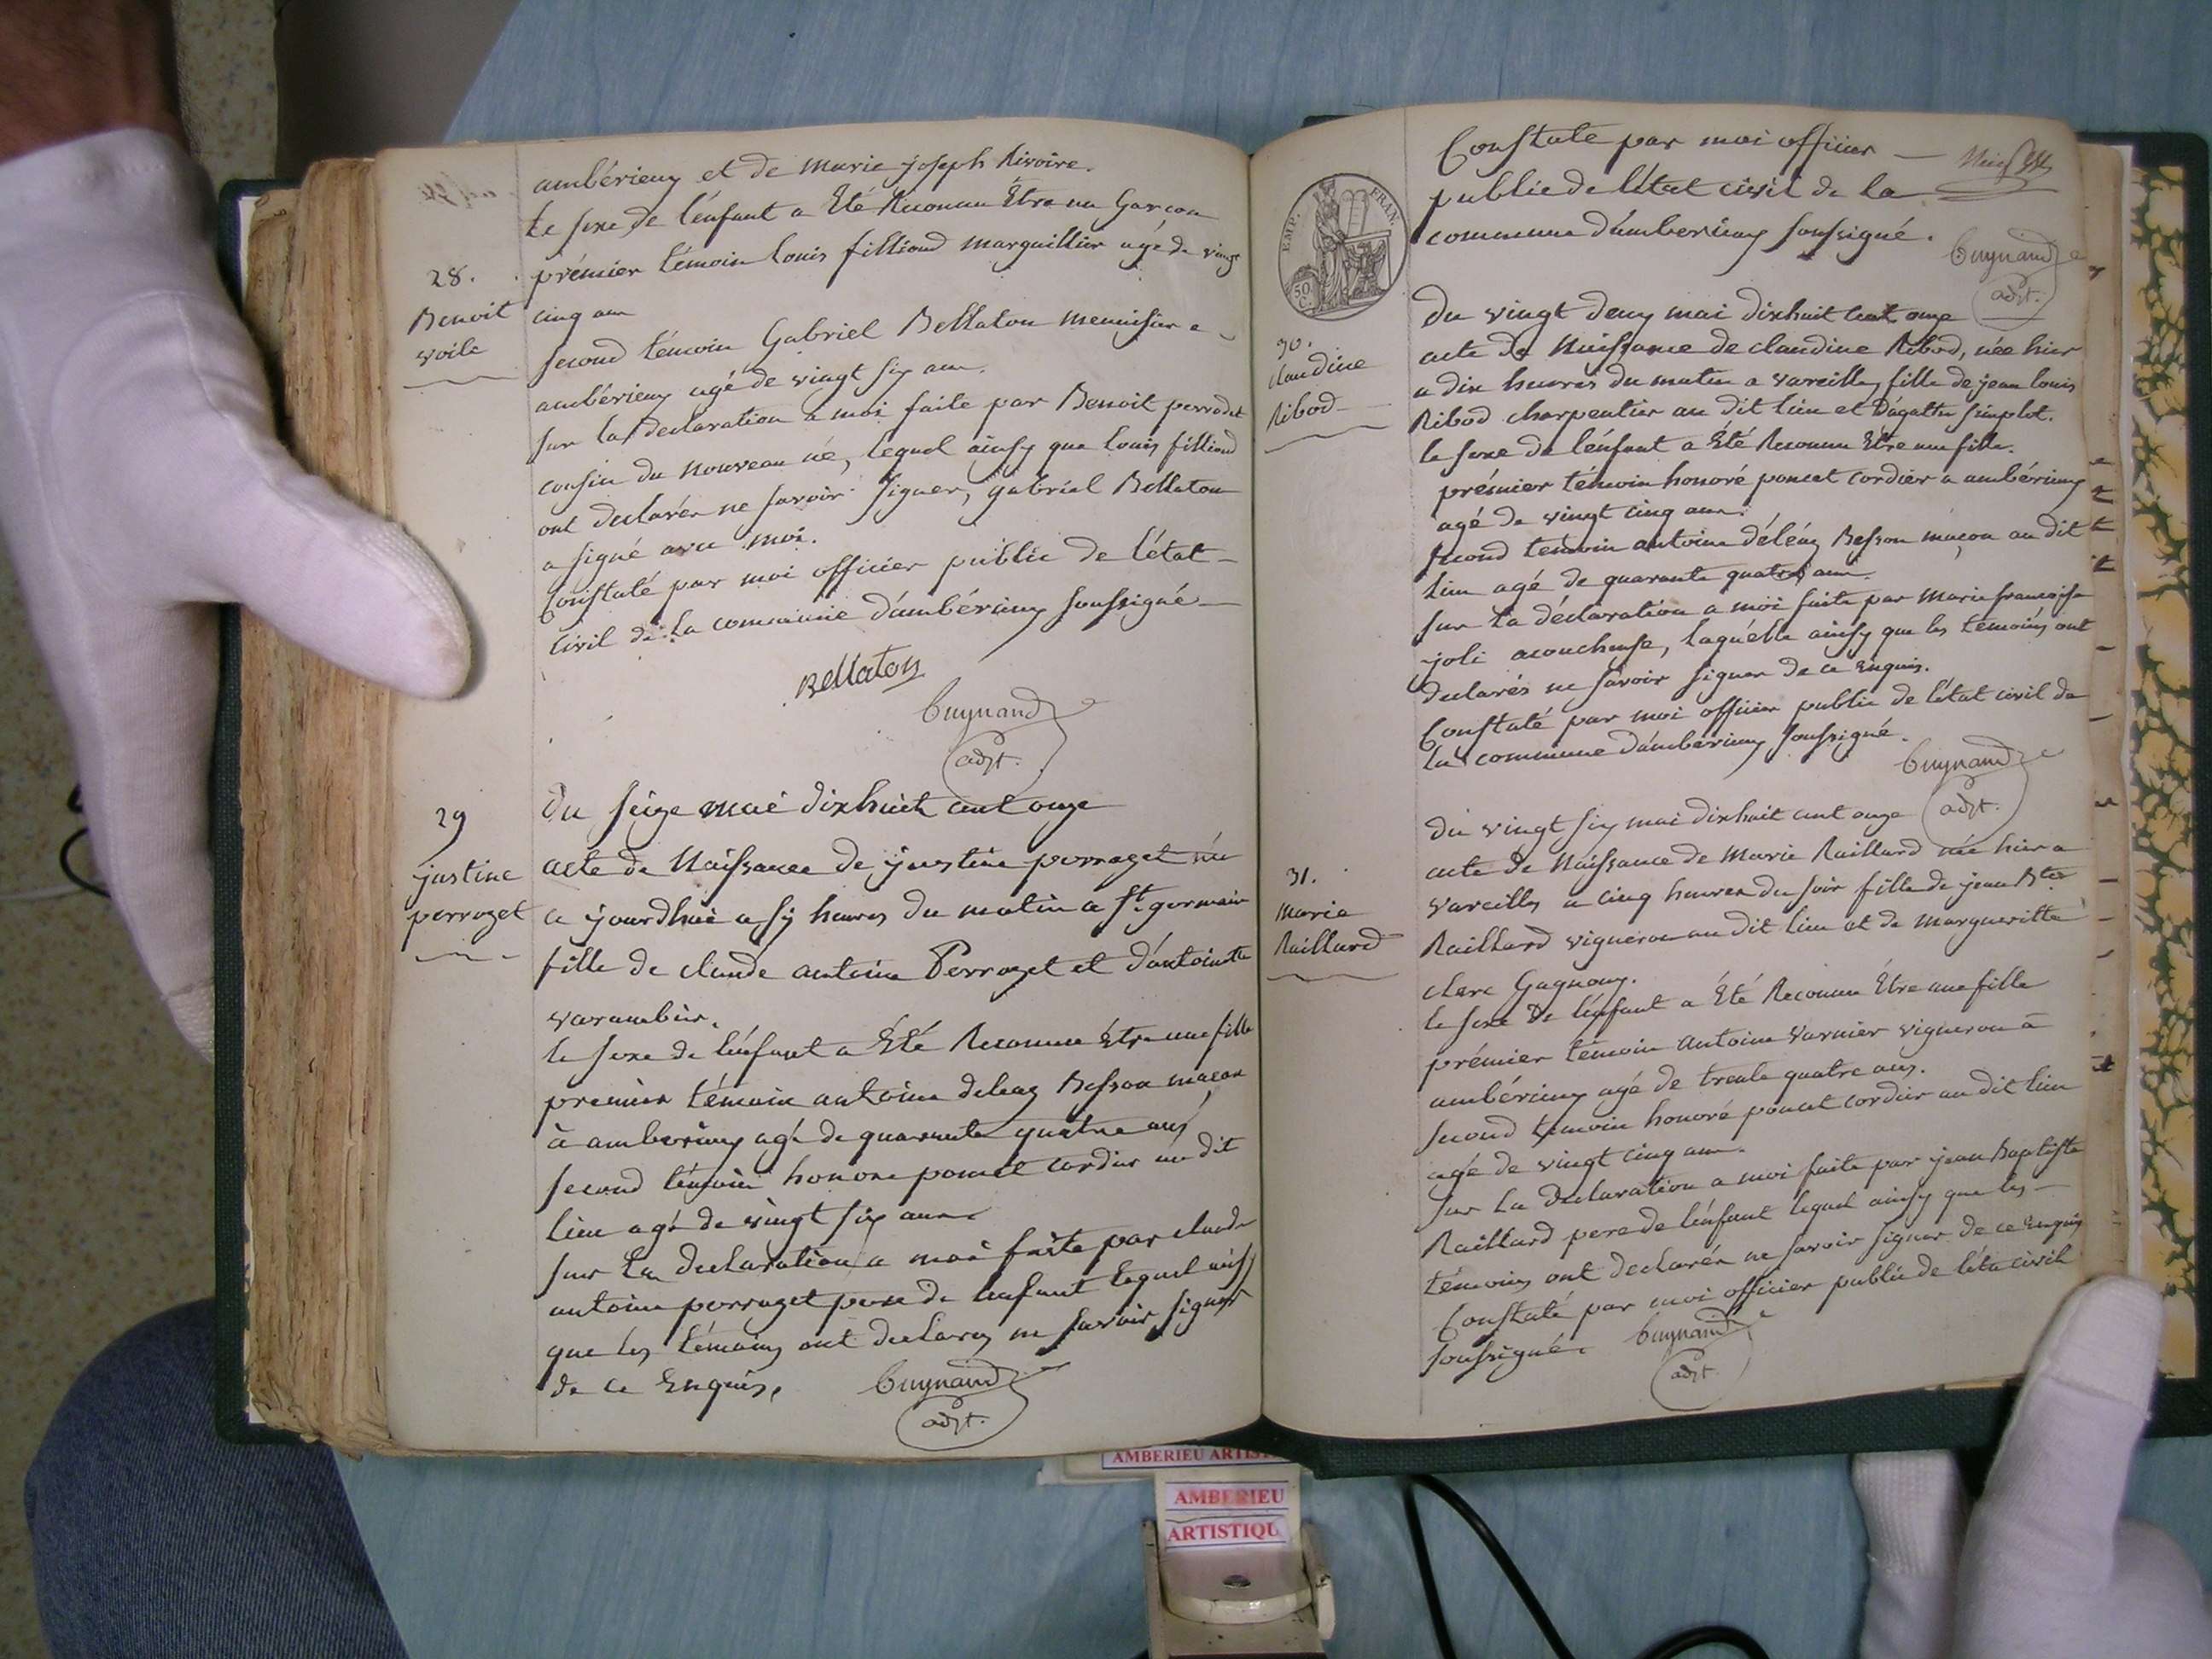 ambérieux et de marie joseph Rivoire.
Le sexe de l'enfant a Eté Reconnu Etre un Garcon
prémier témoin louis filliond marguillier agé de vingt
28.
Benoit
voile
cinq ans
second témoin Gabriel Bellaton menuisier a
ambérieux agé de vingt six ans.
sur la declaration a moi faite par Benoit perrodet
cousin du nouveau né, lequel ainsy que louis filliond
ont declarés ne savoir signer, gabriel Bellaton
a signé avec moi.
Constaté par moi officier public de l'état
civil de la commune d'ambérieux soussigné
Bellaton
Guynand
adjt.
29
justine
perrozet
Du seize mai dixhuit cent onze
acte de Naissance de justine perrozet née
ce jourdhui a six heures du matin a St. germain
fille de claude antoine Perrozet et d'antoinette
varambier.
le sexe de l'enfant a Eté Reconnu Etre une fille
premier témoin antoine deleaz Besson macon
à amberieux agé de quarante quatre ans
second témoin honoré poncet cordier au dit
lieu agé de vingt six ans
sur la declaration a moi faite par claude
antoine perrozet pere de lenfant lequel ainsy
que les témoins ont declarés ne savoir signer
de ce Enquis.
Guynand
adjt.
Constaté par moi officier
public de l'état civil de la
commune d'amberieux soussigné.
Guynand
adjt.
EMP. FRAN.
50 C.
30.
claudine
Ribod
Du vingt deux mai dixhuit cent onze
acte de Naissance de claudine Ribod, née hier
a dix heures du matin a vareilles, fille de jean louis
Ribod charpentier au dit lieu et d'agathe simplot.
le sexe de l'énfant a Eté Reconnu Etre une fille.
prémier témoin honoré poncet cordier a ambérieux
agé de vingt cinq ans.
second temoin antoine déléaz Besson maçon au dit
lieu agé de quarante quatre ans.
sur la déclaration a moi faite par marie francoise
joli acoucheuse, laquelle ainsy que les témoins ont
declarés ne savoir signer de ce Enquis.
Constaté par moi officier public de l'état civil de
la commune d'ambérieux soussigné.
Guynand
adjt.
31.
marie
Raillard
Du vingt six mai dixhuit cent onze
acte de Naissance de Marie Raillard née hier a
vareilles a cinq heures du soir fille de jean Bte.
Raillard vigneron au dit lieu et de marguerittte
clerc Gagnoux.
le sexe de l'énfant a Eté Reconnu Etre une fille
prémier témoin antoine varnier vigneron à
ambérieux agé de trente quatre ans.
second témoin honoré poncet cordier au dit lieu
agé de vingt cinq ans.
sur la declaration a moi faite par jean baptiste
Raillard pere de l'énfant lequel ainsy que les
témoins ont declarés ne savoir signer de ce Enquis
Constaté par moi officier public de l'éta civil
soussigné.
Guynand
adjt.
AMBERIEU
AMBERIEU
ARTISTIQU